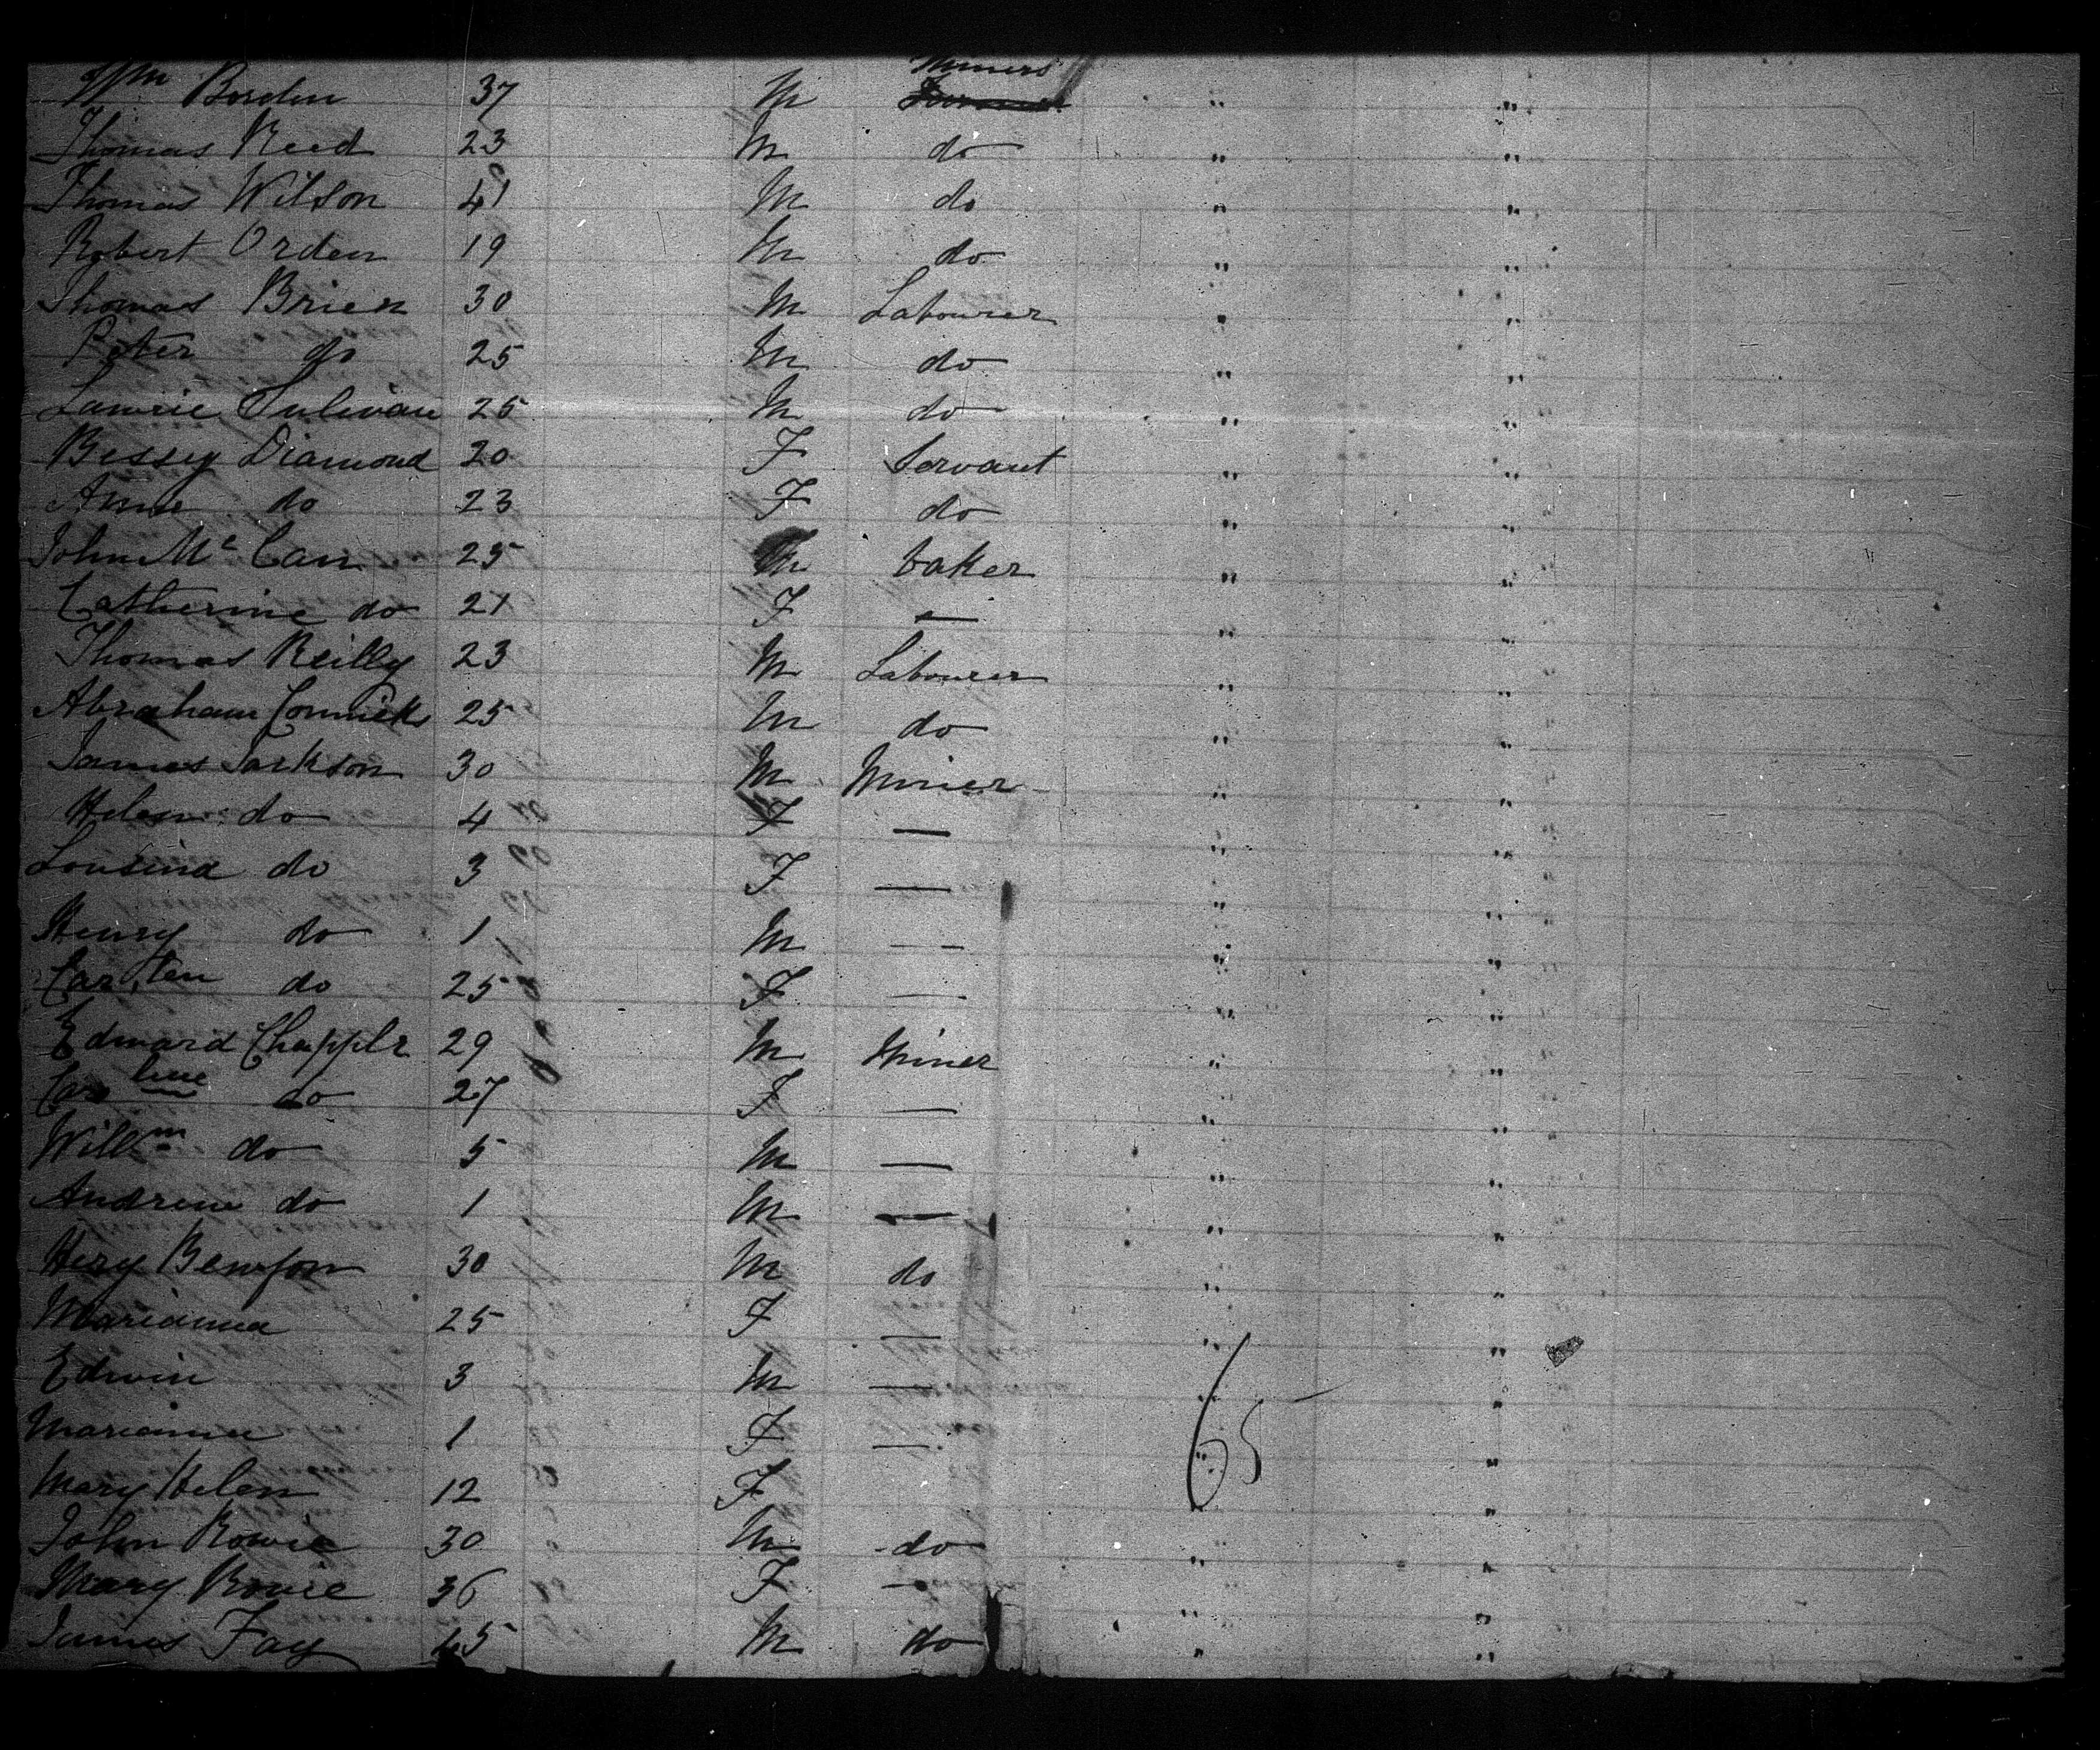 Wm Borden 37 M Miners " "
Thomas Reed 23 M do " "
Thomas Wilson 41 M do " "
Robert Orden 19 M do " "
Thomas Brien 30 M Labourer " "
Peter do 25 M do " "
Lawrie Sulivan 25 M do " "
Bessey Diamond 20 F Servant " "
Anne do 23 F do " "
John Mc Can 25 M baker " "
Catherine do 21 F — " "
Thomas Reilly 23 M Labourer " "
Abraham Connick 25 M do " "
James Jackson 30 M Miner " "
Helen do 4 F — " "
Lousina do 3 F — " "
Henry do 1 M — " "
do 25 F — " "
Edward Chapple 29 M Miner " "
Caroline do 27 F — " "
Willm do 5 M — " "
Andrew do 1 M — " "
Hery 30 M do " "
Marianna 25 F — " "
Edwin 3 M — " "
Marianna 1 F — " "
65
Mary Helen 12 F " "
John Rowie 30 M do " "
Mary Rowie 36 F — " "
James Fay 45 M do " "